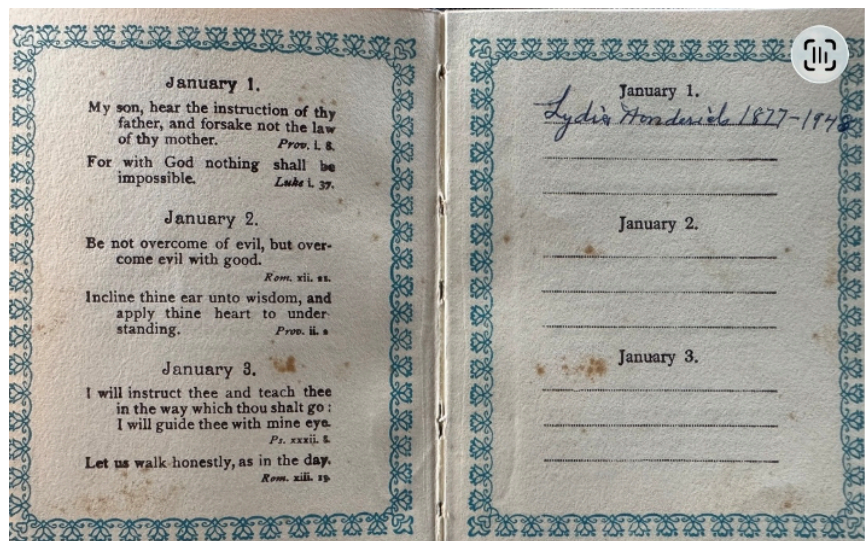 January 1.
My son, hear the instruction of thy
father, and forsake not the law
of thy mother. Prov. i. 8.
For with God nothing shall be
impossible. Luke i. 37.
January 2.
Be not overcome of evil, but over-
come evil with good.
Rom. xii. 21.
Incline thine ear unto wisdom, and
apply thine heart to under-
standing. Prov. ii. 2
January 3.
I will instruct thee and teach thee
in the way which thou shalt go :
I will guide thee with mine eye.
Ps. xxxii. 8.
Let us walk honestly, as in the day.
Rom. xiii.
January 1.
Lydia Honderich 1877-1948
January 2.
January 3.